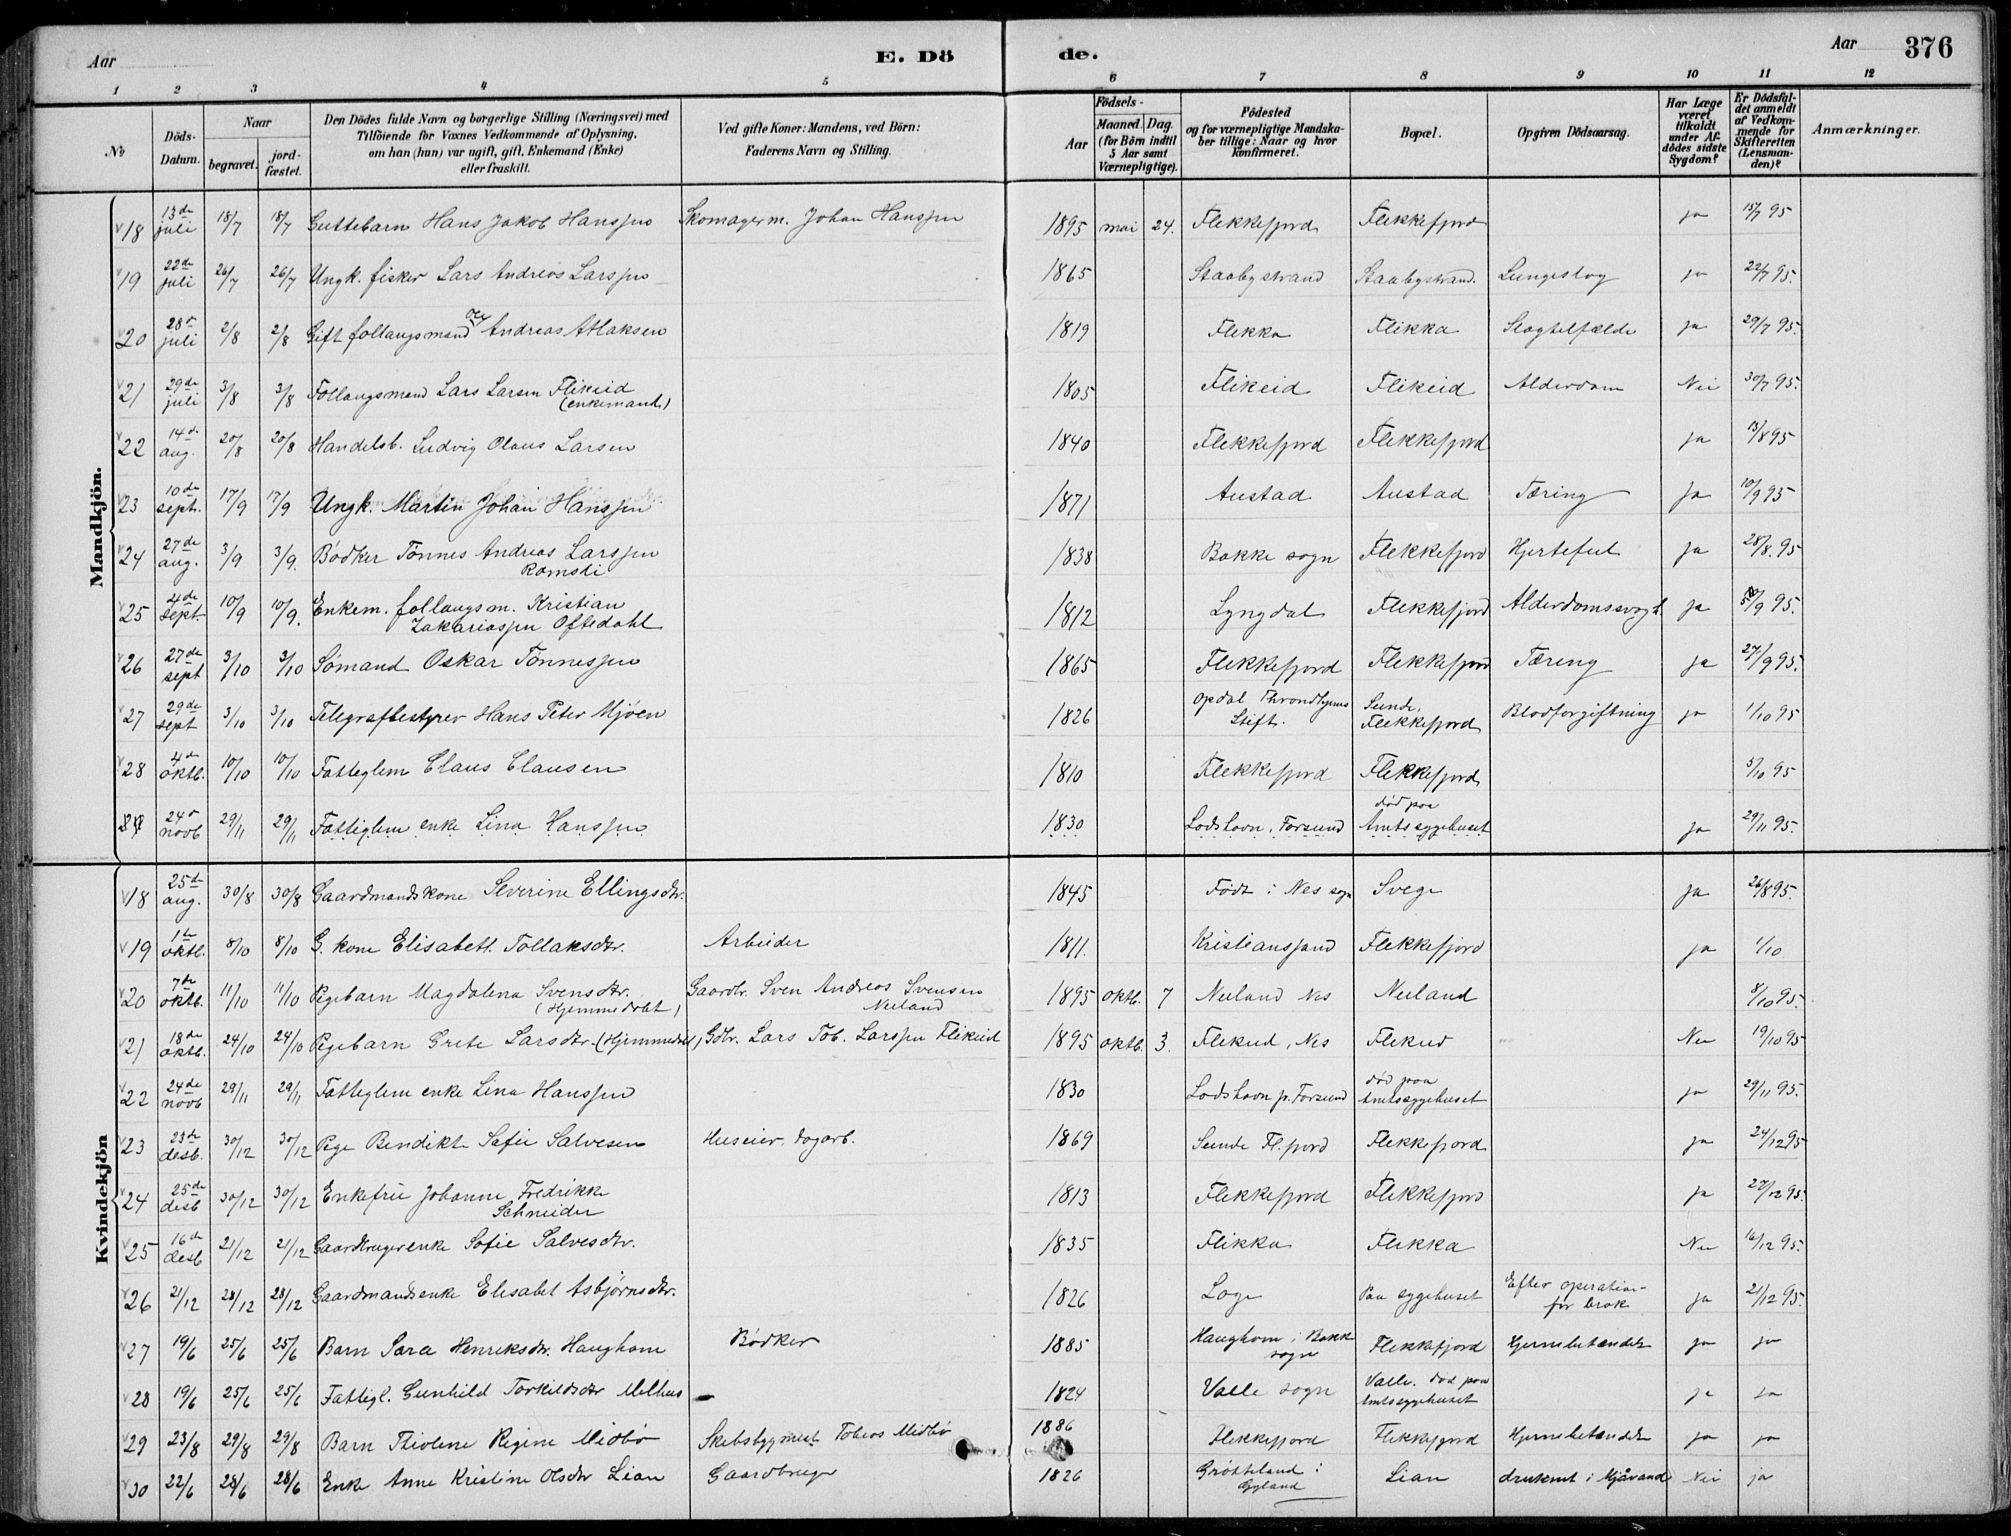 Aar E. Dö de. Aar 376
1 2 3 4 5 6 7 8 9 10 11 12
No Döds-Datum. Naar begravet. jord-fæstet. Den Dödes fulde Navn og borgerlige Stilling (Næringsvei) med Tilföiende for Voxnes Vedkommende af Oplysning, om han (hun) var ugift, gift, Enkemand (Enke) eller fraskilt. Ved gifte Koner: Mandens, ved Börn: Faderens Navn og Stilling. Födsels- Aar Maaned. Dag. (for Börn indtil 5 Aar samt Værnepligtige). Födested og for værnepligtige Mandskaber tillige: Naar og hvor konfirmeret. Bopæl. Opgiven Dödsaarsag. Har Læge været tilkaldt under Afdödes sidste Sygdom? Er Dödsfaldet anmeldt af Vedkommende for Skifteretten (Lensmanden)? Anmærkninger.
Mandkjön.
18 13de juli 18/7 18/7 Guttebarn Hans Jakob Hanssen Skomagerm. Johan Hanssen 1895 mai 24. Flekkefjord Flekkefjord ja 15/7 95
19 22de juli 26/7 26/7 Ungk. fisker Lars Andreas Larssen 1865 Staabystrand Staabystrand. ja 22/7 95.
20 28de juli 2/8 2/8 Gift follaugsmand Ole Andreas Atlaksen 1819 Flekka Flikka Slagtilfælde ja 29/7 95.
21 29de juli 3/8 3/8 Follaugsmand Lars Larsen Flikeid (enkemand) 1805 Flikeid Flikeid Alderdom Nei 30/7 95.
22 14de aug. 20/8 20/8 Handelsb. Ludvig Olaus Larsen 1840 Flekkefjord Flekkefjord ja 13/8 95
23 10de sept. 17/9 17/9 Ungk. Martin Johan Hanssen 1871 Austad Austad Tæring ja 10/9 95
24 27de aug. 3/9 3/9. Bødker Tönnes Andreas Larssen Romsli 1838 Bakke sogn Flekkefjord Hjertefeil ja 28/8. 95
25 4de sept. 10/9 10/9. Enkem. follaugsm. Kristian Zakariassen Oftedahl 1812 Lyngdal Flekkefjord Alderdomssvagh. ja /9 95.
26 27de sept 3/10 3/10 Sømand Oskar Tönnessen 1865 Flekkefjord Flekkefjord Tæring ja 27/9 95.
27 29de sept 3/10 3/10 Telegrafbestyrer Hans Peter Mjöen 1826 Opdal Throndhjems Stift. Sunde, Flekkefjord Blodforgiftning ja 1/10 95
28 4de oktb. 10/10 10/10 Fatteglem Claus Clausen 1810 Flekkefjord Flekkefjord 5/10 95
24de novb 29/11 29/11 Fattiglem enke Lina Hanssen 1830 Lodshavn, Farsund død paa Amtssygehuset ja 29/11 95.
Kvindekjön
18 25de aug. 30/8 30/8 Gaardmandskone Severine Ellingsdtr. 1845 Født i Nes sogn Svege ja 26/8 95.
19 1te oktb. 8/10 8/10 G. kone Elisabeth Tollaksdtr. Arbeider 1811. Kristianssand Flekkefjord ja 1/10
20 7de oktb. 11/10 11/10 Pigebarn Magdalena Svensdtr. (Hjemmedøbt) Gaardbr. Sven Andreas Svensen Neiland 1895 oktb. 7 Neiland Nes Neiland 8/10 95.
21 18de oktb. 24/10 24/10 Pigebarn Grete Larsdtr. (Hjemmedøbt) Gdbr. Lars Tob. Larssen Flikeid 1895 oktb. 3. Flekeid, Nes Flekeid Nei 19/10 95
22 24de novb 29/11 29/11 Fatteglem enke Lina Hanssen 1830 Lodshavn p. Farsund død paa Amtssygehuset ja 29/11 95.
23 23de desb. 30/12 30/12 Pige Bendikte Sofie Salvesen Huseier, dagarb. 1869 Sunde Fl.fjord Flekkefjord ja 24/12 95
24 25de desb 30/12 30/12 Enkefru Johanne Fredrikke Schneider 1813 Flekkefjord Flekkefjord ja 27/12 95.
25 16de desb 21/12 21/12 Gaardbrugerenke Sofie Salvesdtr. 1835 Flikka Flekka Nei 16/12 95.
26 21/12 28/12 28/12 Gaardmandsenke Elisabet Asbjørnsdtr. 1826 Loge Paa sygehuset Efter operation for brok ja 21/12 95.
27 19/6 25/6 25/6 Barn Sara Henriksdtr. Haughom Bødker 1885 Haughom i Bakke sogn Flekkefjord Hjernebetændelse ja ja
28 19/6 25/6 25/6 Fattigl. Gunhild Torkildsdtr Melhus – 1824 Valle sogn Valle. død paa Amtssygehuset ja ja
29 23/8 29/8 29/8 Barn Regine Midbø Skibsbygmest. Tobias Midbø 1886 Flekkefjord Flekkefjord Hjernebetændelse ja ja
30 22/6 28/6 28/6 Enke Anne Kristine Olsdtr Lian Gaardbruger 1826 Grøtteland i Gyland Lian druknet i Mjåvand Nei ja